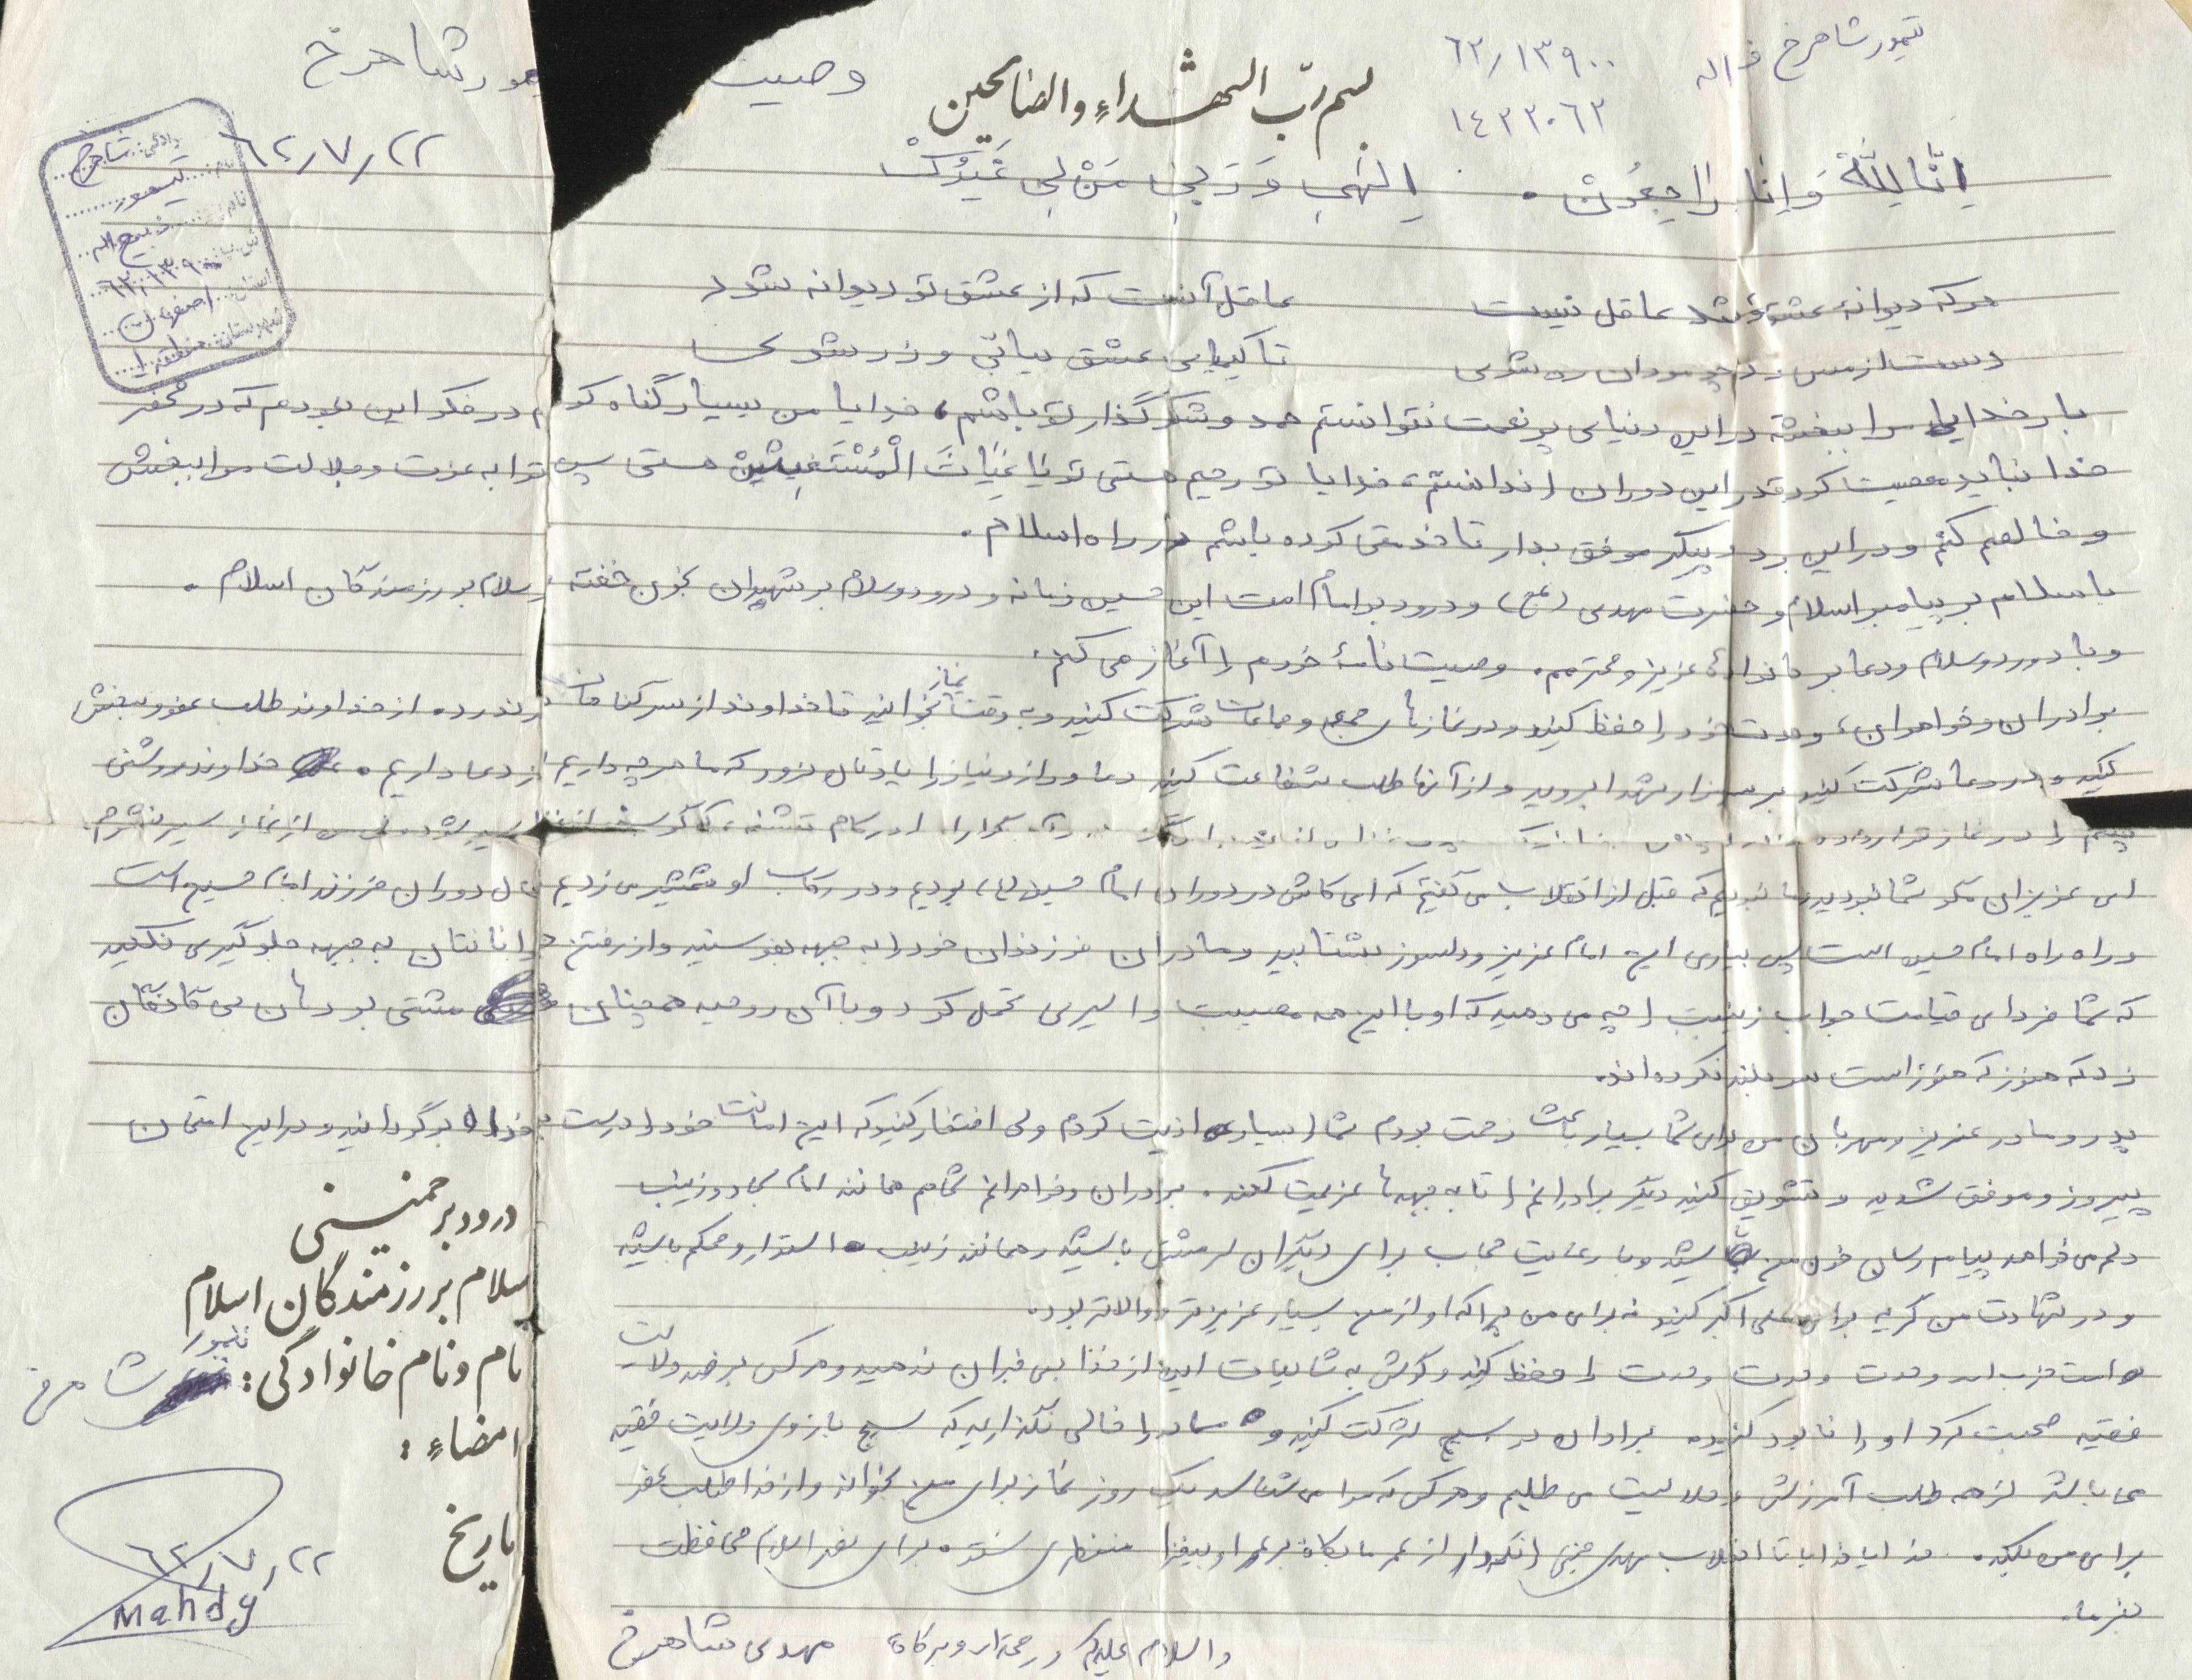 تیمور شاهرخ
۶۲/۱۳۹۰۰
۱۴۲۲۰۶۲
وصیت
تیمور شاهرخ
۶۲/۷/۲۲
بسم ربّ الشهداء والصالحین
اِنّا لِلّهِ وَ اِنا اِلیه راجِعُون. اِلٰهی وَ رَبّی مَنْ لی غَیْرُکْ
نام: تیمور
شاهرخ
ذبیح اله
۶۲/۱۳۹۰۰
استان: اصفهان
شهرستان:
هرکه دیوانهٔ عشق تو نشد عاقل نیست عاقل آنست که از عشق تو دیوانه شود
دست از مس وجود چو مردان ره بشوی تا کیمیای عشق بیابی و زر شوی
بار خدایا مرا ببخش در این دنیای پر نعمت نتوانستم حمد و شکرگذار تو باشم، خدایا من بسیار گناه کردم در فکر این نبودم که در محضر
خدا نباید معصیت کرد قدر این دوران را ندانستم، خدایا تو رحیم هستی تو یا غِیاثَ الْمُسْتَغیثینْ هستی پس ترا به عزت و جلالت مرا ببخش
و خالصم کنم و در این پیکار موفق بدار تا خدمتی کرده باشم در راه اسلام.
با سلام بر پیامبر اسلام و حضرت مهدی (عج) و درود بر امام امت این حسین زمانه و درود و سلام بر شهیدان بخون خفته و سلام بر رزمندگان اسلام.
و با درود و سلام و دعا بر خانوادهٔ عزیز و محترمم. وصیت نامهٔ خودم را آغاز می کنم.
برادران و خواهران، وحدت خود را حفظ کنید و در نمازهای جمعه و جماعات شرکت کنید و به وقت نماز بخوانید تا خداوند از سر گناهان در گذرد از خداوند طلب عفو و بخشش
کنید و در دعا شرکت کنید بر سر مزار شهدا بروید و از آنها طلب شفاعت کنید دعا و راز و نیاز را یادتان نرود که ما هرچه داریم از دعا داریم. خداوند روشنی
چشمم را در نماز قرار داده سیر شود ولی من از نماز سیر نشوم.
ای عزیزان مگر شما نبودید و ما نبودیم که قبل از انقلاب می گفتیم که ای کاش در دوران امام حسین (ع) بودیم و در رکاب او شمشیر می زدیم حال دوران فرزند امام حسین است
و راه راه امام حسین است پس بیاری این امام عزیز و دلسوز بشتابید و مادران فرزندان خود را به جبهه بفرستید و از رفتن جوانانتان به جبهه جلوگیری نکنید
که شما فردای قیامت جواب زینب را چه می دهید که او با این همه مصیبت و اسیری تحمل کرد و با آن روحیه همچنان مشتی بر دهان می
زد که هنوز که هنوز است سر بلند نکرده اند.
پدر و مادر عزیز و مهربان من برای شما بسیار باعث زحمت بودم شما را بسیار اذیت کردم ولی افتخار کنید که این امانت خود را درست به خدا برگردانید و در این امتحان
پیروز و موفق شدید و تشویق کنید دیگر برادرانم را تا به جبهه ها عزیمت کنند. برادران و خواهرانم شما هم مانند امام سجاد و زینب
دلم می خواهد پیام رسان خون من باشید و با رعایت حجاب برای دیگران سرمشق باشید و همانند زینب استوار و محکم باشید
و در شهادت من گریه برای علی اکبر کنید نه برای من چرا که او از من بسیار عزیزتر و والاتر بود.
امت حزب اله وحدت وحدت وحدت را حفظ کنید و گوش به شایعات این از خدا بی خبران ندهید و هرکس بر ضد ولایت
فقیه صحبت کرد او را نابود کنید. برادران در بسیج شرکت کنید و مساجد را خالی نگذارید که بسیج بازوی ولایت فقیه
می باشد از همه طلب آمرزش و حلالیت می طلبم و هرکس که مرا می شناسد یک روز نماز برای من بخواند و از خدا طلب عفو
برای من بکند. خدایا خدایا تا انقلاب مهدی خمینی را نگهدار از عمر ما بکاه بر عمر او بیفزا برای نصر اسلام محافظت
بفرما.
والسلام علیکم و رحمة اله و برکاته مهدی شاهرخ
درود بر خمینی
سلام بر رزمندگان اسلام
نام و نام خانوادگی: تیمور شاهرخ
امضاء:
تاریخ
۶۲/۷/۲۲
Mahdy